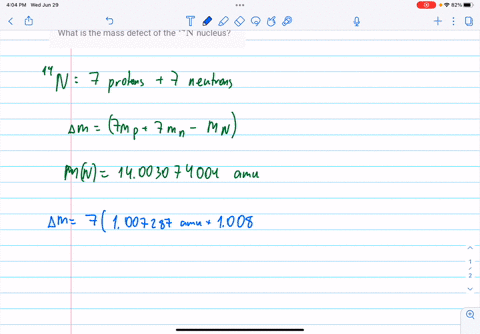 4:04 PM Wed Jun 29
82%
What is the mass defect of the ¹⁴N nucleus?
¹⁴N = 7 protons + 7 neutrons
Δm = (7mp + 7mn - mN)
m(N) = 14.003074004 amu
Δm = 7( 1.007287 amu + 1.008
1
2